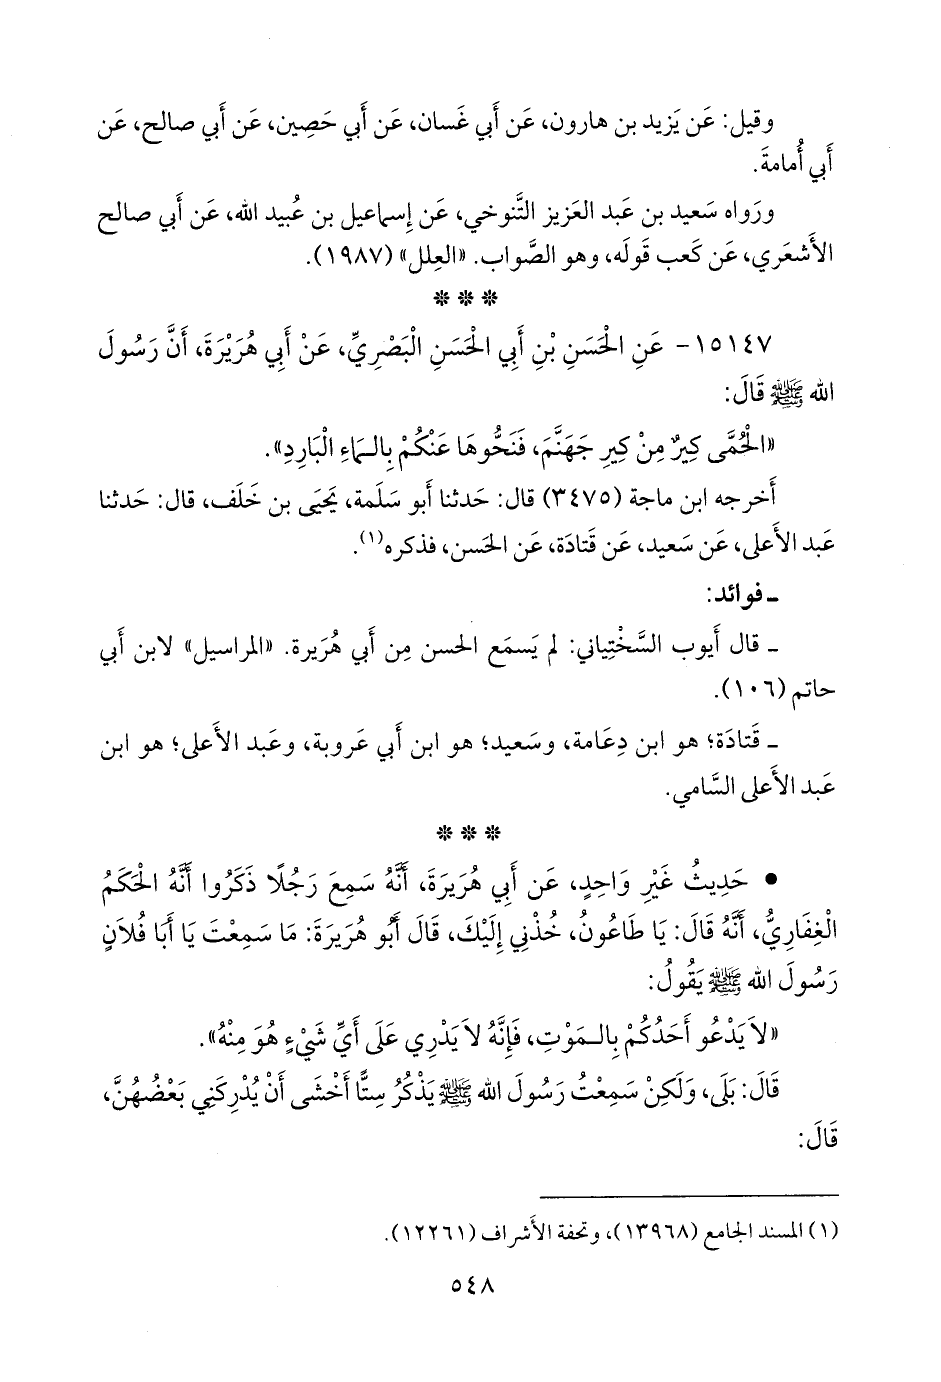 وقيل: عَن يَزيد بن هارون، عَن أَبي غَسان، عَن أَبي حَصِين، عَن أَبي صالح، عَن
أَبي أُمامةَ.
ورَواه سَعيد بن عَبد العزيز التَّنوخي، عَن إِسماعيل بن عُبيد الله، عَن أَبي صالح
الأَشعَري، عَن كَعب قولَه، وهو الصَّواب. «العِلل» (١٩٨٧).
* * *
١٥١٤٧- عَنِ الْحَسَنِ بْنِ أَبِي الْحَسَنِ الْبَصْرِيِّ، عَنْ أَبِي هُرَيْرَةَ، أَنَّ رَسُولَ
الله ﷺ قَالَ:
«الْحُمَّى كِيرٌ مِنْ كِيرِ جَهَنَّمَ، فَنَحُّوهَا عَنْكُمْ بِالـمَاءِ الْبَارِدِ».
أَخرجه ابن ماجة (٣٤٧٥) قال: حَدثنا أَبو سَلَمة، يَحيَى بن خَلَف، قال: حَدثنا
عَبد الأَعلى، عَن سَعيد، عَن قَتادَة، عَن الحَسن، فذكره(١).
ـ فوائد:
ـ قال أَيوب السَّختِياني: لم يَسمَع الحسن مِن أَبي هُرَيرة. «المراسيل» لابن أَبي
حاتم (١٠٦).
ـ قَتادَة؛ هو ابن دِعَامة، وسَعيد؛ هو ابن أَبي عَروبة، وعَبد الأَعلى؛ هو ابن
عَبد الأَعلى السَّامي.
* * *
• حَدِيثُ غَيْرِ وَاحِدٍ، عَن أَبِي هُرَيرَةَ، أَنَّهُ سَمِعَ رَجُلًا ذَكَرُوا أَنَّهُ الْحَكَمُ
الْغِفَارِيُّ، أَنَّهُ قَالَ: يَا طَاعُونُ، خُذْنِي إِلَيْكَ، قَالَ أَبُو هُرَيْرَةَ: مَا سَمِعْتَ يَا أَبَا فُلَانٍ
رَسُولَ الله ﷺ يَقُولُ:
«لاَ يَدْعُو أَحَدُكُمْ بِالـمَوْتِ، فَإِنَّهُ لاَ يَدْرِي عَلَى أَيِّ شَيْءٍ هُوَ مِنْهُ».
قَالَ: بَلَى، وَلَكِنْ سَمِعْتُ رَسُولَ الله ﷺ يَذْكُرُ سِتًّا أَخْشَى أَنْ يُدْرِكَنِي بَعْضُهُنَّ،
قَالَ:
(١) المسند الجامع (١٣٩٦٨)، وتحفة الأَشراف (١٢٢٦١).
٥٤٨